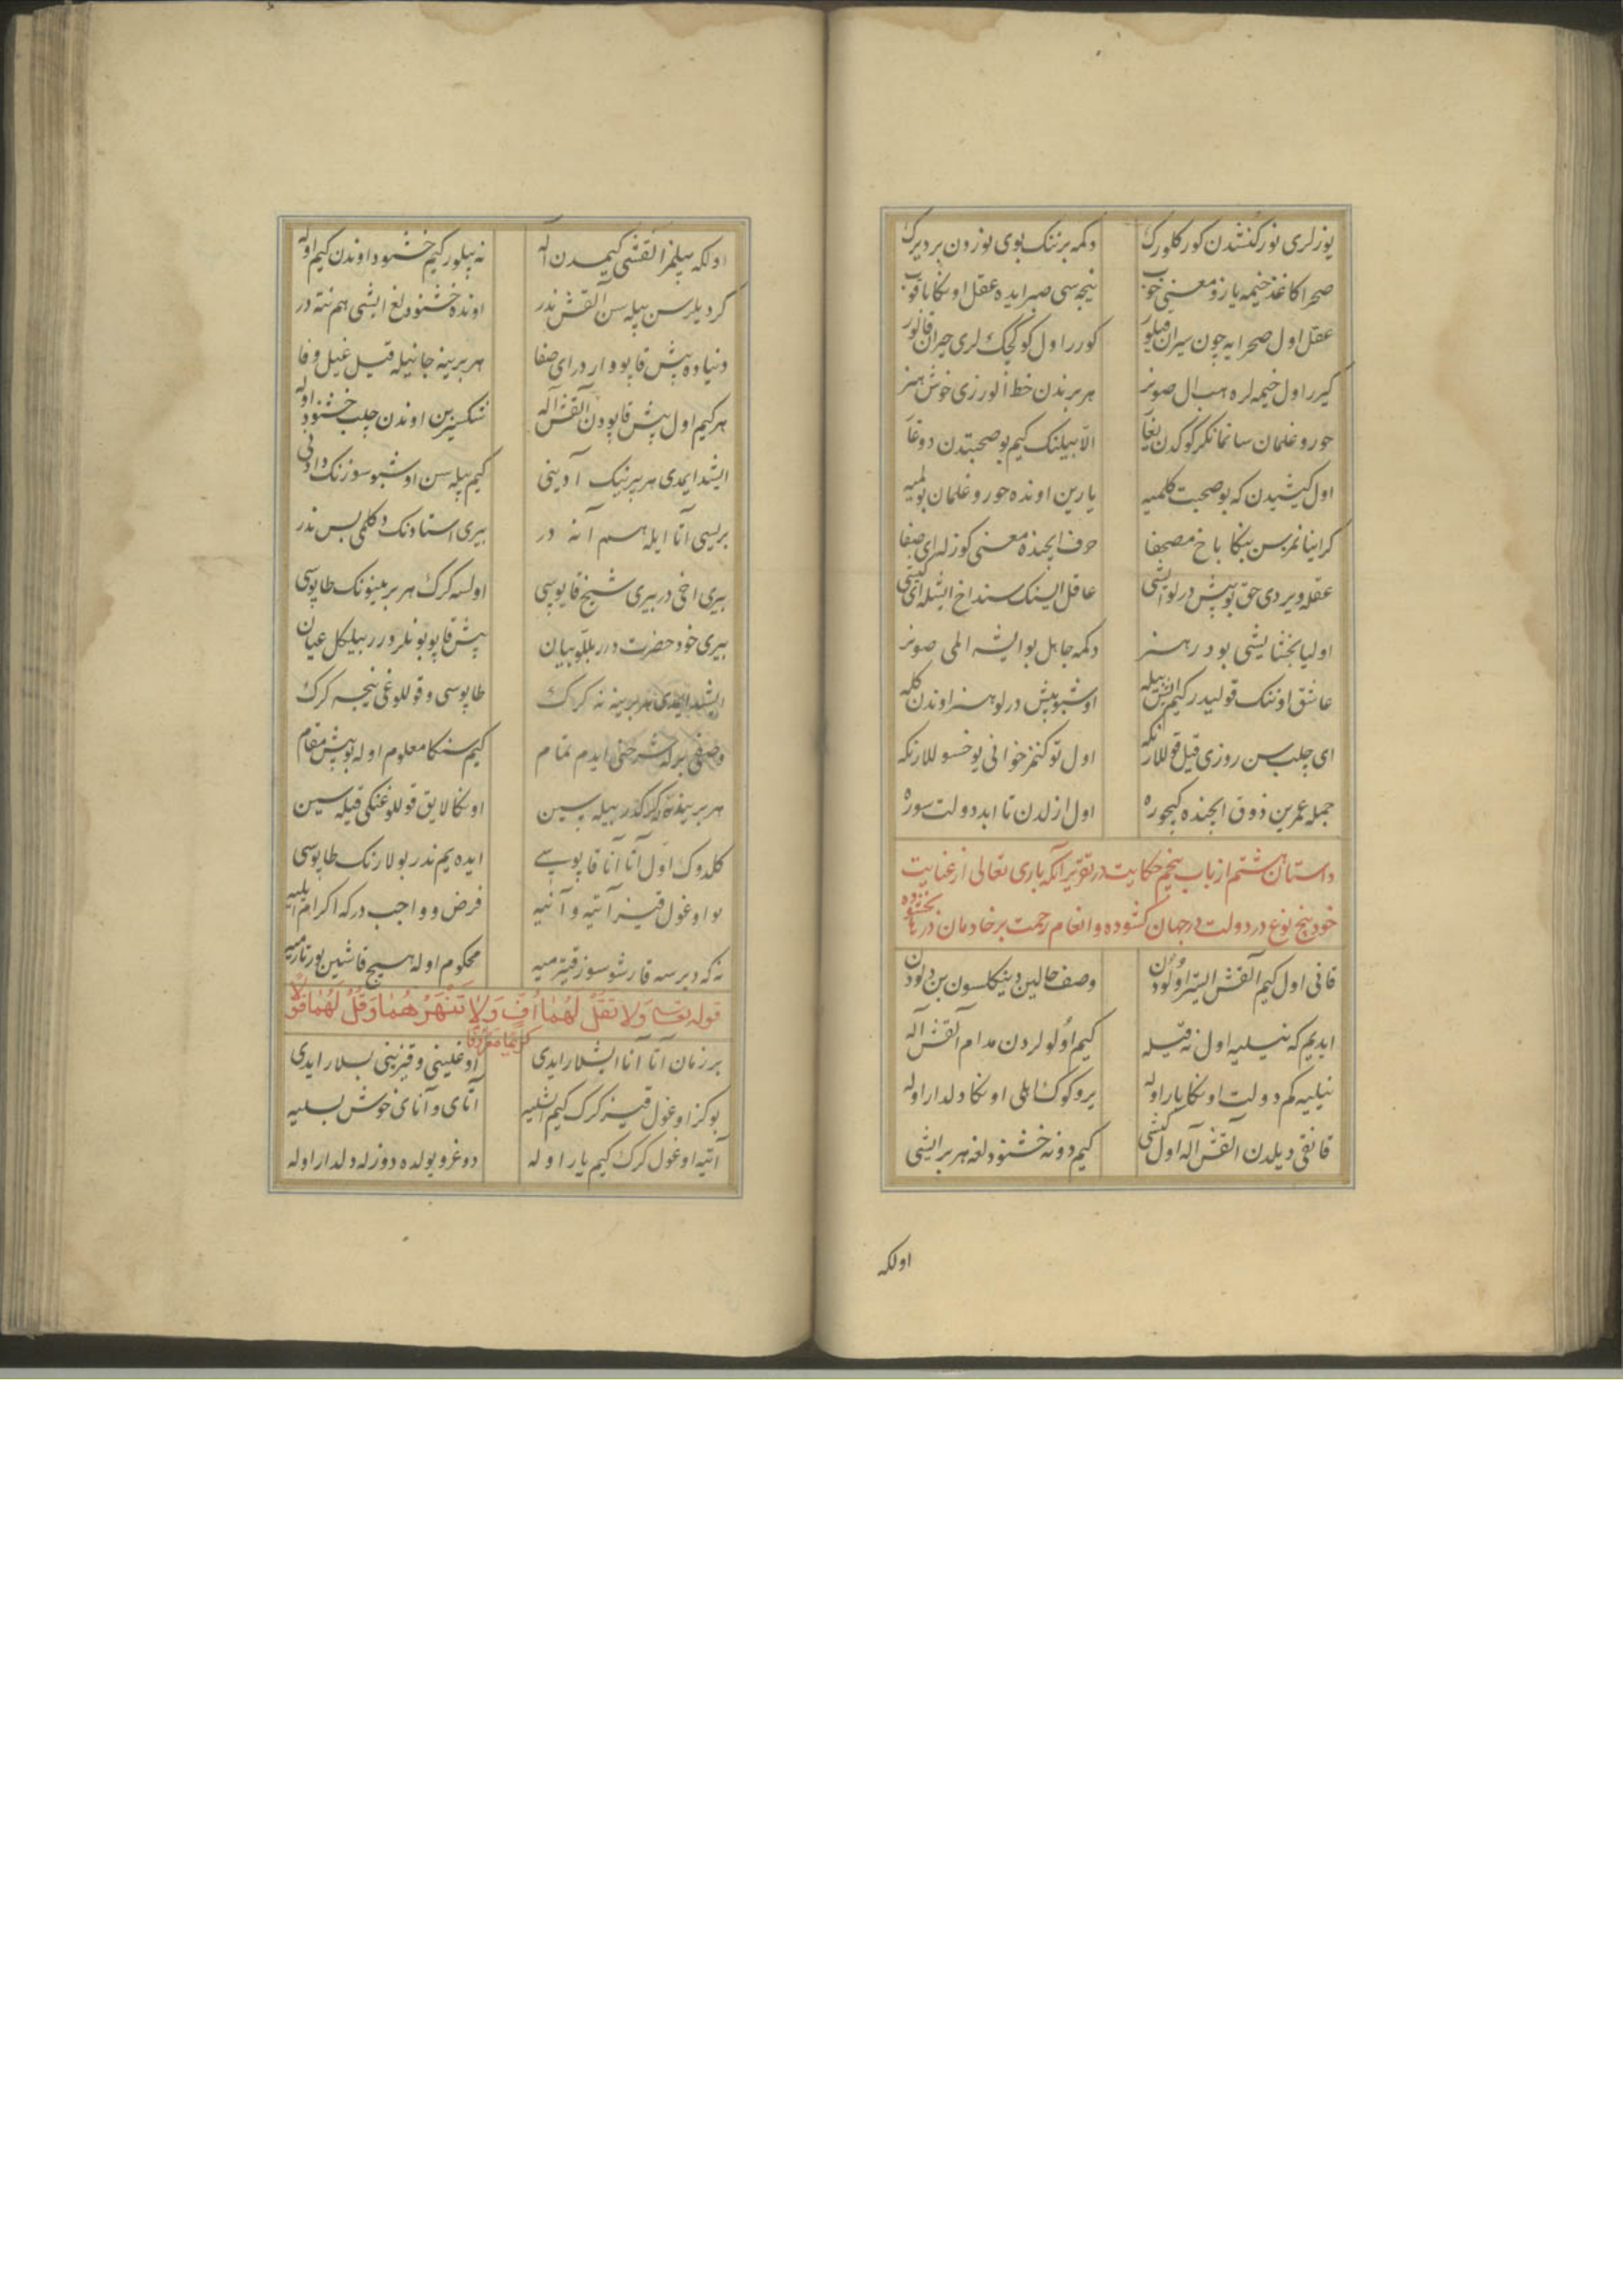 یوزلری نور کنشدن کور کلورک دکمه برننک بوی نوزون بردیرک
صحرا کاغذ خیمه یازو معنی خوب نیجه سی صبر ایده عقل اوکا باقوب
عقل اول صحرایه چون سیران قیلور کورر اول کوکچک لری حیران قالور
کیرر اول خیمه لره هب ال صونر هر بریندن خط الور زی خوش هنر
حور و غلمان سانمانکز کوکدن یغا الا بیلنک کیم بو صحبتدن دوغا
اول کیشیدن که بو صحبت کلمیه یارین اونده حور و غلمان بولمیه
کر اینانمزسن بنکا باخ مصحفا حرف ایجنده معنی کوزلر ای صفا
عقله ویردی حق بو بیش درلو ایشی عاقل ایسنک سنداخ ایشله ای کیشی
اولیا بخشایشی بودر هنر دکمه جاهل بو ایشه المی صونر
عاشق اوننک قولیدر کیم ایش بیله اوشبو بیش درلو هنر اوندن کله
ای چلب سن روزی قیل قوللارنکه اول توکنمز خوانی یوخسوللارنکه
جمله عمرین ذوق ایجنده کیجوره اول ازلدن تا ابد دولت سوره
داستان هشتم از باب پنجم حکایت در تقریر آنکه باری تعالی از عنایت
خود پنج نوع در دولت در جهان کشوده و انعام رحمت بر خادمان در بخشوده
قانی اول کیم آلقش ایستر اولودن وصف حالین دینکلسون بن دلودن
ایدیم که نیلیه اول نه قیله کیم اولولردن مدام آلقش آله
نیلیه کم دولت اوکا یار اوله یر و کوک اهلی اوکا دلدار اوله
قانقی دیلدن آلقش آله اول کیشی کیم دونه خشنودلغه هر بر ایشی
اولکه
اولکه بیلمز آلقشی کیمدن آله نه بیلور کیم خشنود اوندن کیم اوله
کر دیلرسن بیله سن آلقش ندر اونده خشنودلغ ایشی هم نته در
دنیاده بیش قاپو واردر ای صفا هر برینه جانیله قیل غیل وفا
هرکیم اول بیش قاپودن آلقش آله شکسزین اوندن چلب خشنود اوله
ایشد ایمدی هر برینک آدینی کیم بیله سن اوشبو سوزنک دادنی
بریسی آتا ایله هم آنه در بیری استادنک دکلمی بس ندر
بیری اخی در بیری شیخ قاپوسی اولسه کرک هر برینونک طاپوسی
بیری خود حضرت درر بللو بیان بیش قاپو بونلر درر بیلکل عیان
ایشد ایمدی هر برینه نه کرک طاپوسی و قوللوغی نیجه کرک
وصفی برله شرحنی ایدم تمام کیم سنکا معلوم اوله بو بیش مقام
هر برینه نه کرکدر بیله سین اوکا لایق قوللوغنکی قیله سین
کلدوک اول آتا آنا قاپوسی ایده یم ندر بولارنک طاپوسی
بو اوغول قیز آتیه و آنیه فرض و واجب درکه اکرام ایلیه
نه که دیرسه قارشو سوز قیترمیه محکوم اوله هیچ قاشین یورتارمیه
قوله تعالی وَلا تَقُلْ لَهُمَا اُفٍّ وَلا تَنْهَرْهُمَا وَقُلْ لَهُمَا قَوْلاً
کریما صدق الله
بر زمان آتا آنا ایشلار ایدی اوغلینی و قیزینی بسلار ایدی
بو کز اوغول قیز کرک کیم ایشلیه آتای و آنای خوش بسلیه
آتیه اوغول کرک کیم یار اوله دوغرو یولده دوزله دلدار اوله